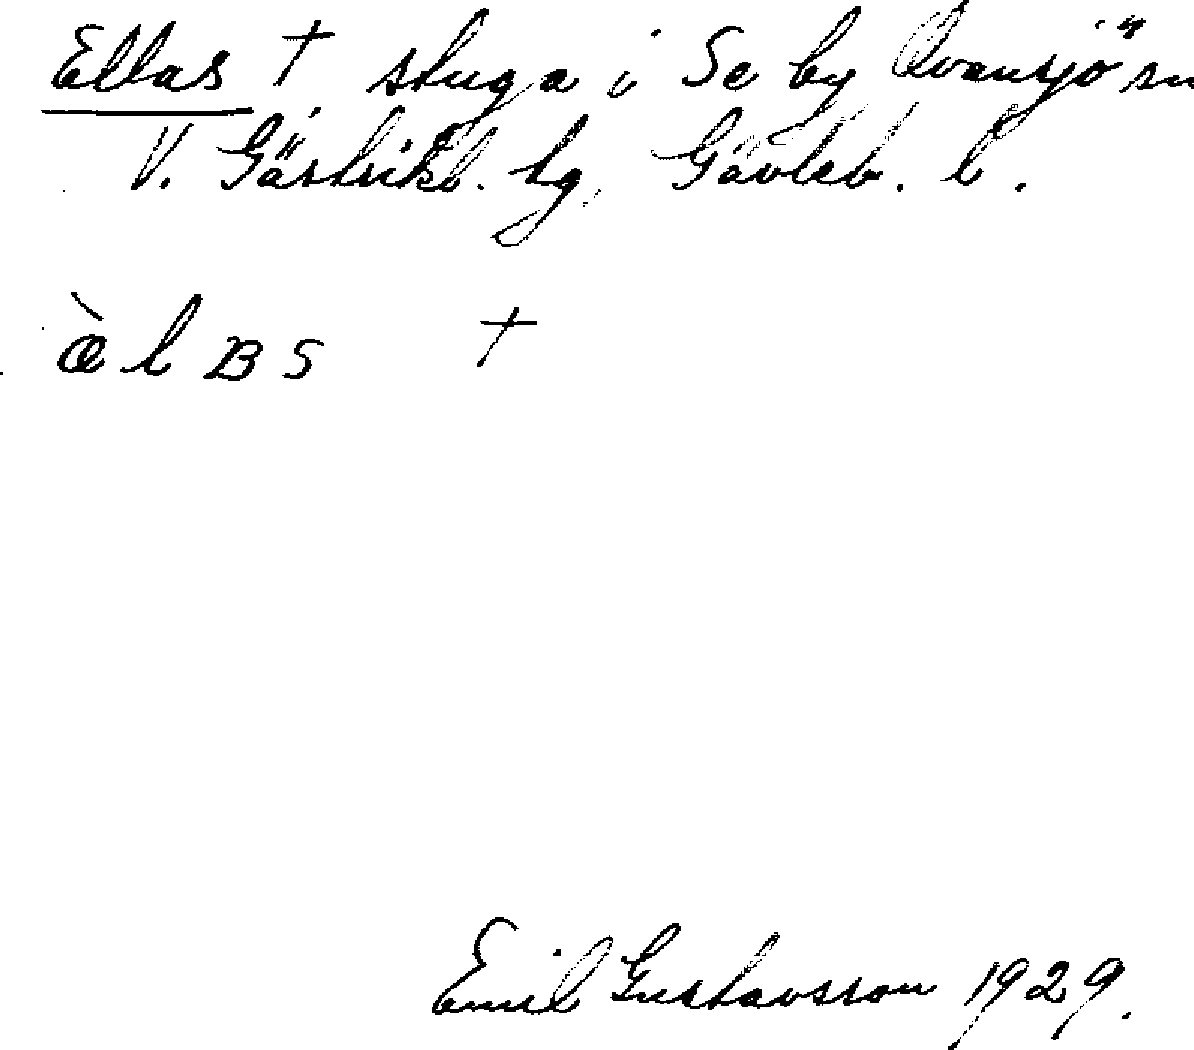 Ellas † stuga i Se by Ovansjö sn
V. Gästrikl. hg. Gävleb. l.
æ̀ l ʙ s †
Emil Gustavsson 1929.